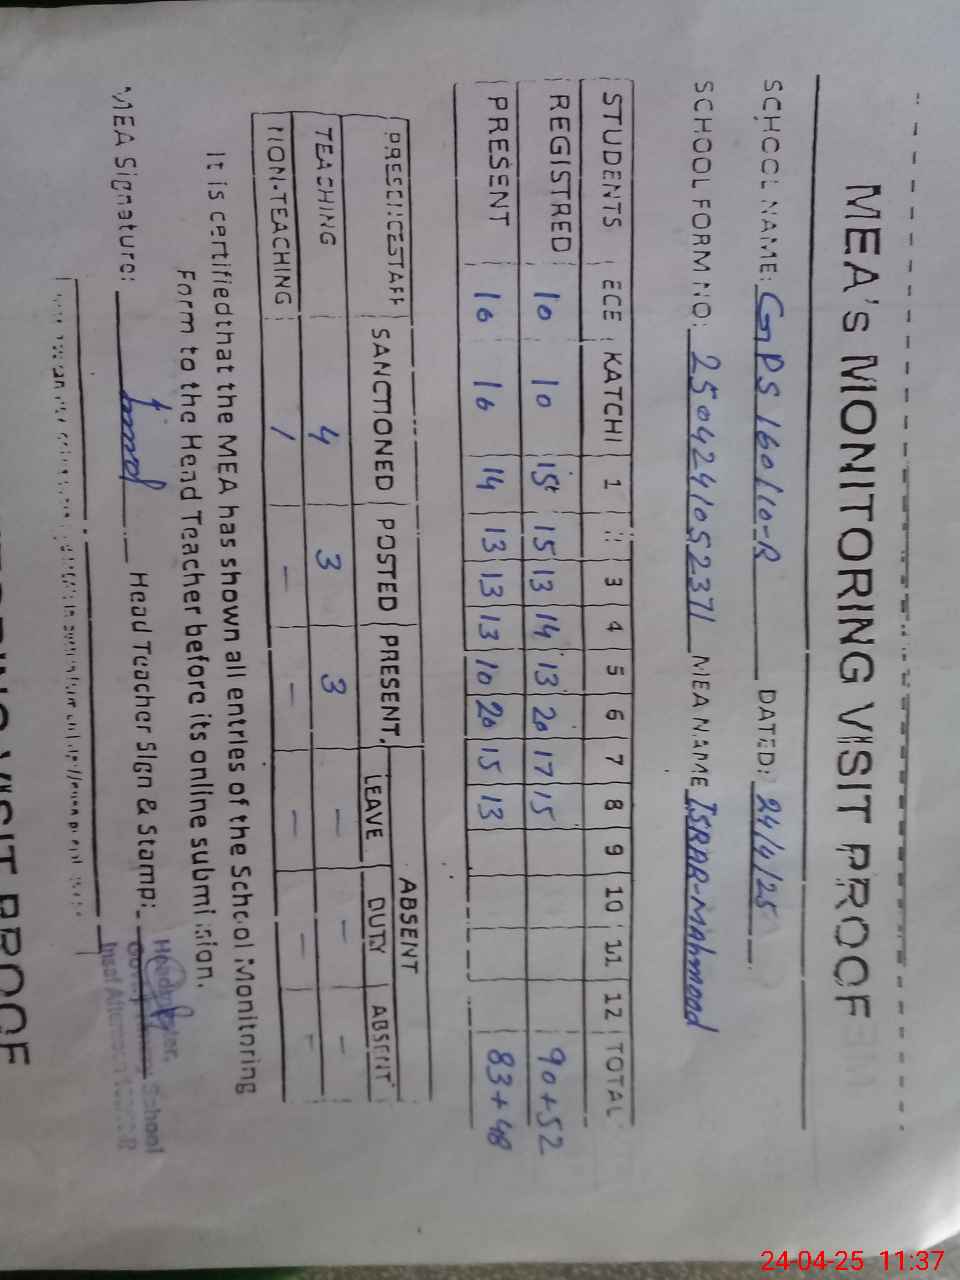 MEA's MONITORING VISIT PROOF
SCHOOL NAME: GPS 160/10-R DATED: 24/4/25
SCHOOL FORM NO: 2504241052371 MEA NAME ISRAR-Mahmood
STUDENTS ECE KATCHI 1 3 4 5 6 7 8 9 10 11 12 TOTAL
REGISTRED 10 10 15 15 13 14 13 20 17 15 90+52
PRESENT 10 10 14 13 13 13 10 20 15 13 83+48
ABSENT
PRESENCE STAFF SANCTIONED POSTED PRESENT LEAVE DUTY ABSENT
TEACHING 4 3 3 - - -
NON-TEACHING 1 - - - - -
It is certified that the MEA has shown all entries of the School Monitoring
Form to the Head Teacher before its online submission.
MEA Signature: Head Teacher Sign & Stamp:
School
VISIT PROOF
24-04-25 11:37